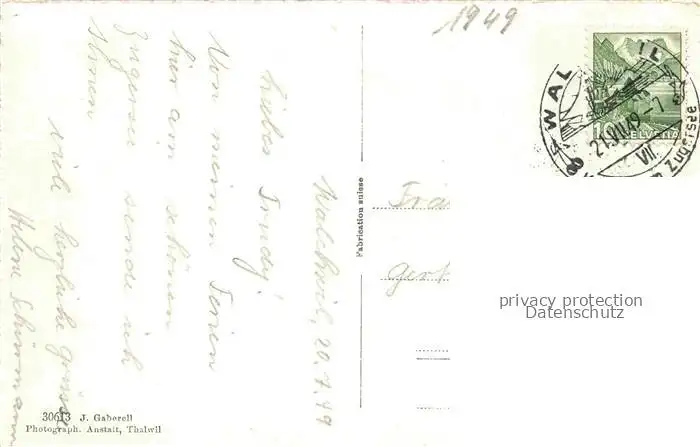 1949
WALCHWIL
21.VII.49-7
VII
am Zugersee
10
HELVETIA
Walchwil, 20.7.49
Liebes Trudy!
Von meinen Ferien
hier am schönen
Zugersee sende ich
Ihnen
viele herzliche Grüsse
Helene Schürmann
Fabrication suisse
Frä
Gert
privacy protection
Datenschutz
30613 J. Gaberell
Photograph. Anstalt, Thalwil